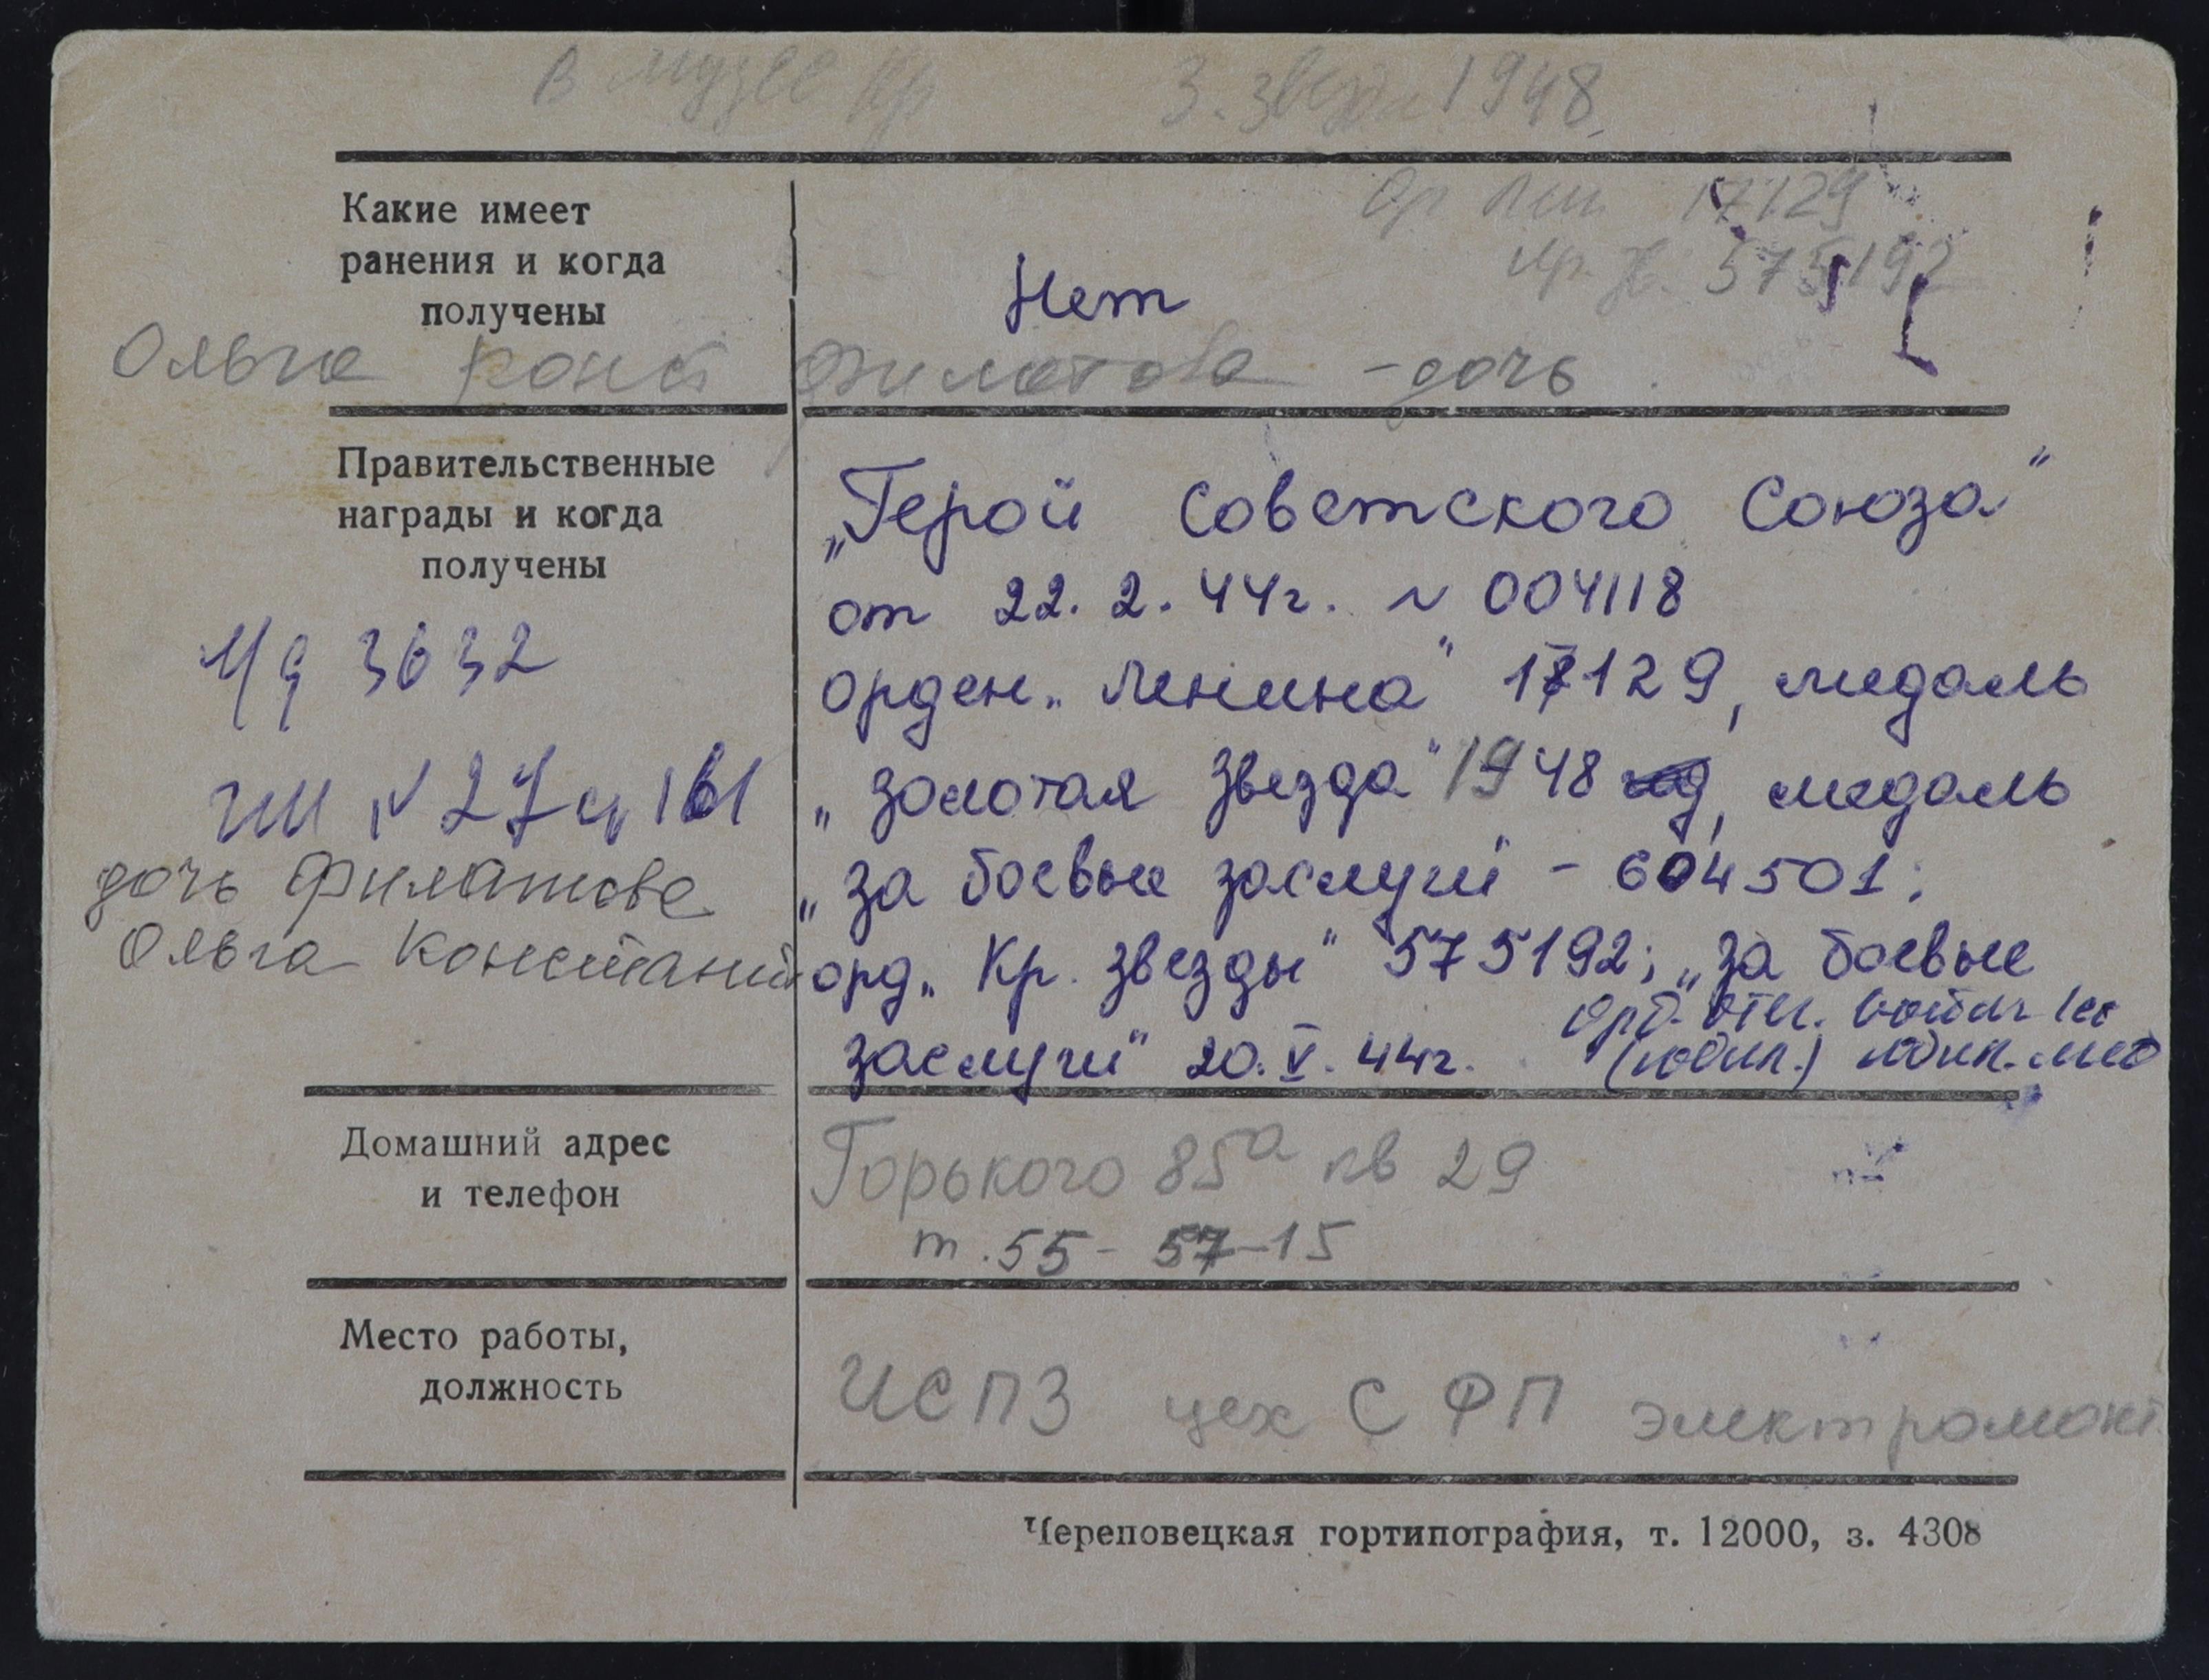 В музее Кр З. звезда 1948
Ор Лен 17129
Кр. З. 575192
Какие имеет
ранения и когда
получены
Нет
Ольга Конст Филатова - дочь
Правительственные
награды и когда
получены
„Герой Советского Союза"
от 22. 2. 44г. N 004118
орден „Ленина" 17129, медаль
„Золотая Звезда" 1948 год, медаль
„за боевые заслуги - 604501;
орд „Кр. Звезды" 575192; „За боевые
заслуги" 20. V. 44г.
орд. Отеч. войны Iст
(юбил.) юбил. мед
3632
N 27 161
дочь Филатова
Ольга Констант
Домашний адрес
и телефон
Горького 85а кв 29
т. 55-57-15
Место работы,
должность
ЦСПЗ цех СФП электромонт
Череповецкая гортипография, т. 12000, з. 4308